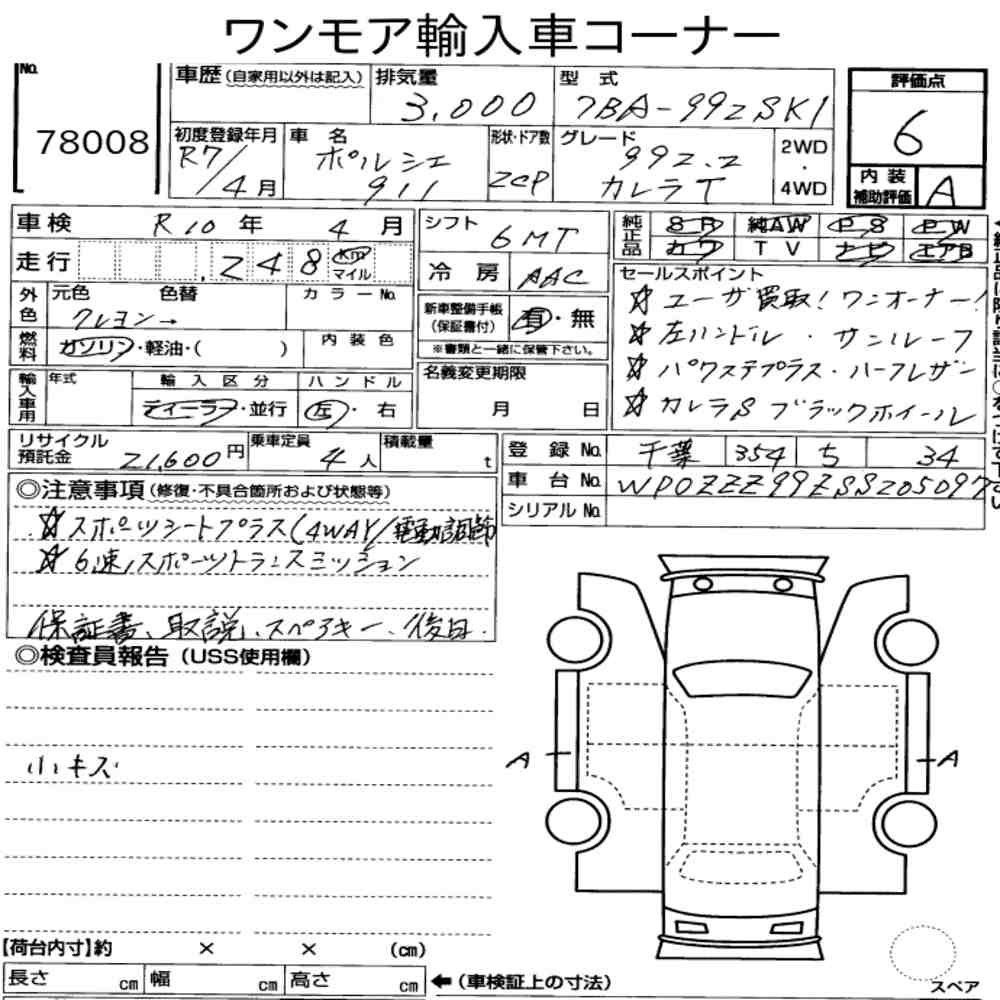 ワンモア輸入車コーナー
No. 78008
車歴 (自家用以外は記入)
排気量 3,000
型式 7BA-992SK1
評価点 6
内装補助評価 A
初度登録年月 R7/4月
車名 ポルシェ 911
形状・ドア数 2CP
グレード 992.2 カレラT
2WD・4WD
車検 R10年 4月
走行 248 km マイル
シフト 6MT
冷房 AAC
純正品 SR 純AW PS PW
カワ TV ナビ エアB
外色 元色 色替 カラーNo.
クレヨン→
燃料 ガソリン・軽油・( ) 内装色
新車整備手帳(保証書付) 有・無
※書類と一緒に保管下さい。
セールスポイント
☆ ユーザ買取!ワンオーナー!
☆ 左ハンドル・サンルーフ
☆ パワステプラス・ハーフレザー
☆ カレラSブラックホイール
輸入車用 年式 輸入区分 ハンドル
ディーラー・並行 左・右
名義変更期限
月 日
リサイクル預託金 21,600円
乗車定員 4人
積載量 t
登録No. 千葉 354 ち 34
車台No. WP0ZZZ99ZSS205097
シリアルNo.
◎注意事項(修復・不具合箇所および状態等)
☆スポーツシートプラス(4WAY/電動調節
☆6速、スポーツトランスミッション
保証書、取説、スペアキー、後日.
◎検査員報告(USS使用欄)
小キズ
A
A
【荷台内寸】約 × × (cm)
長さ cm 幅 cm 高さ cm ←(車検証上の寸法)
スペア